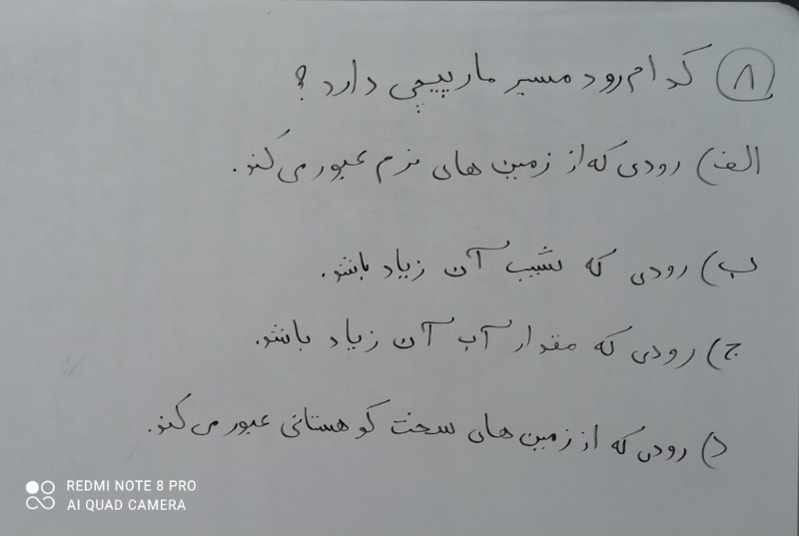 ۸ کدام رود مسیر مارپیچی دارد ؟
الف) رودی که از زمین های نرم عبور می کند.
ب) رودی که شیب آن زیاد باشد.
ج) رودی که مقدار آب آن زیاد باشد.
د) رودی که از زمین های سخت کوهستانی عبور می کند.
REDMI NOTE 8 PRO
AI QUAD CAMERA